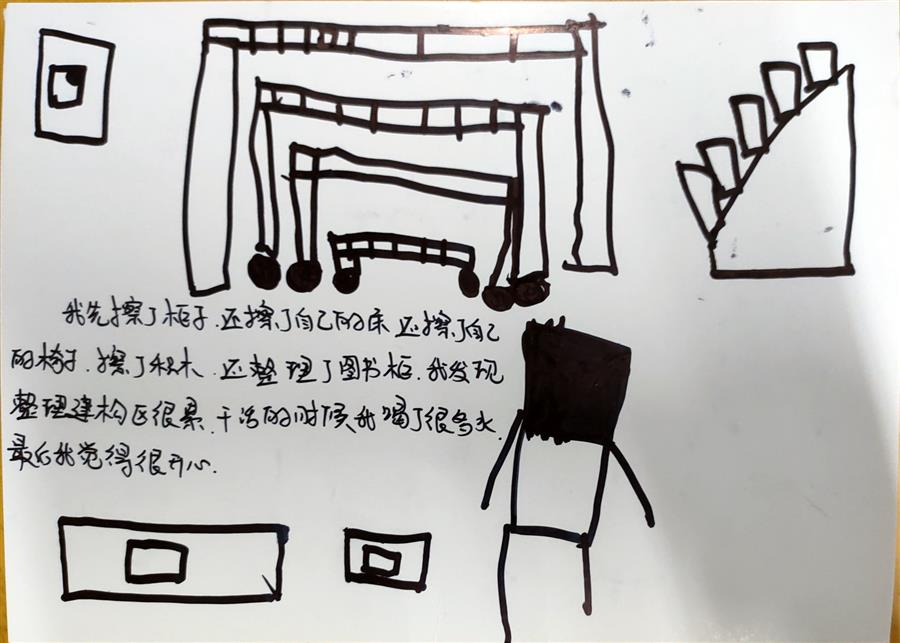 我先擦了柜子.还擦了自己的床 还擦了自己
的椅子.擦了积木.还整理了图书柜.我发现
整理建构区很累.干活的时候我喝了很多水.
最后我觉得很开心.